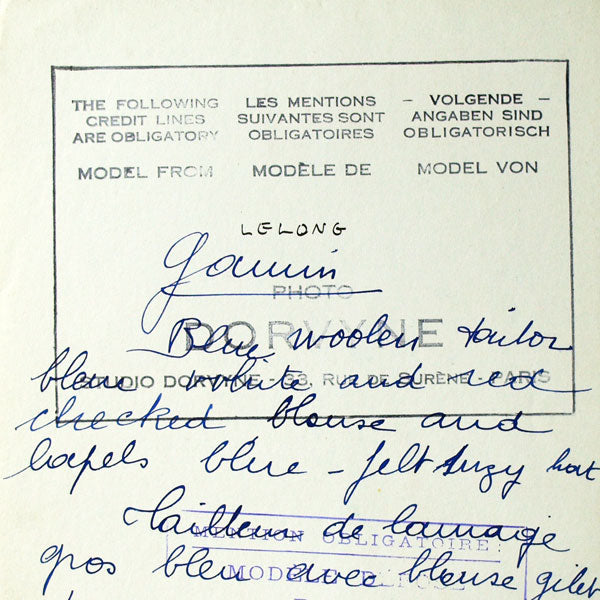 THE FOLLOWING CREDIT LINES ARE OBLIGATORY
LES MENTIONS SUIVANTES SONT OBLIGATOIRES
– VOLGENDE – ANGABEN SIND OBLIGATORISCH
MODEL FROM
MODÈLE DE
MODEL VON
LELONG
Gamin
PHOTO
DORVYNE
STUDIO DORVYNE - 33, RUE DE SURÈNE - PARIS
Blue woolen tailor
bleu white and red
checked blouse and
lapels blue - felt Suzy hat
Tailleur de lainage
MENTION OBLIGATOIRE:
gros bleu avec blouse gilet
MODÈLE DÉPOSÉ